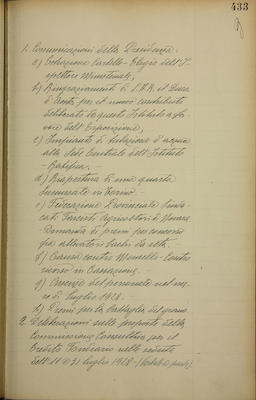 433
1. Comunicazioni della Presidenza:
a) Cartello - Elogio dell'I-
spettore Ministeriale,
b) Ringraziamenti di S.A.R. il Duca
d'Aosta per il nuovo contributo
deliberato da questo Istituto a fa-
vore dell'Esposizione,
c) Impianto di d'acqua
alla Sede Centrale dell'Istituto
- Ratifica. -
d) Riapertura di una quarta
succursale in Torino. -
e) Federazione Provinciale Sinda-
cati Fascisti Agricoltori di Novara
- Domanda di premi per concorso
fra allevatori bachi da seta. -
f) Causa contro - Contro
ricorso in Cassazione. -
g) del personale nel me-
se di luglio 1928. -
h) Premi per la Battaglia del grano.
2. Deliberazioni sulle proposte della
Commissione Consultiva per il
Credito Fondiario nelle sedute
dell' 11 e 31 luglio 1928 -